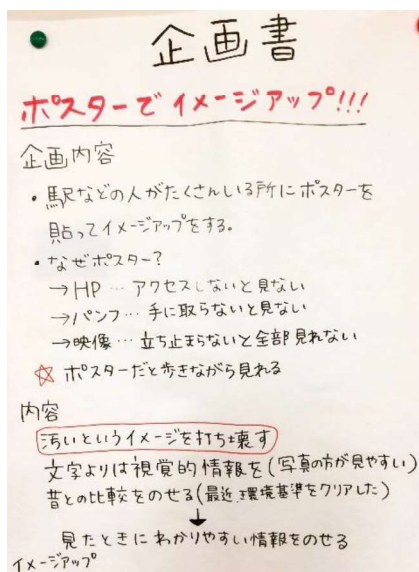 企画書
ポスターでイメージアップ!!!
企画内容
・駅などの人がたくさんいる所にポスターを
貼ってイメージアップをする。
・なぜポスター?
→HP… アクセスしないと見ない
→パンフ… 手に取らないと見ない
→映像… 立ち止まらないと全部見れない
☆ ポスターだと歩きながら見れる
内容
汚いというイメージを打ち壊す
文字よりは視覚的情報を(写真の方が見やすい)
昔との比較をのせる(最近、環境基準をクリアした)
↓
見たときにわかりやすい情報をのせる
イメージアップ